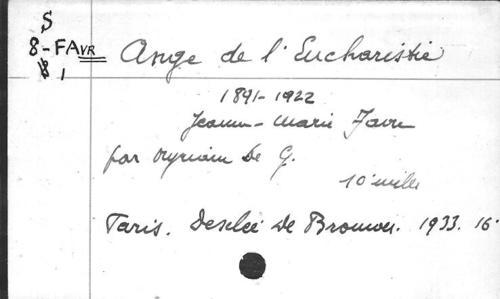 S
8-FAVR
1
Ange de l'Eucharistie
1891-1922
Jeanne-Marie Favre
par Myriam de G.
10e mille
Paris. Desclée De Brouwer. 1933. 16°